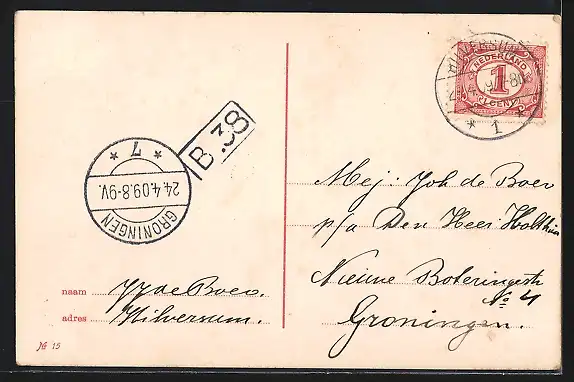 HILVERSUM
NEDERLAND
1
(1 CENT)
* 1 *
B 38
GRONINGEN
24.4.09.8-9V.
* 7 *
Mej: Joh de Boer
p/a Den Heer Holthuis
Nieuwe Boteringestr
No 4
Groningen.
naam de Boer.
adres Hilversum.
№ 15